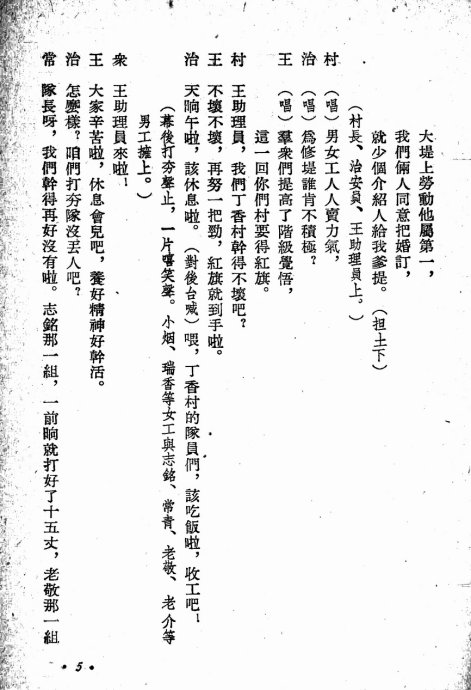 大堤上勞動他屬第一，
我們倆人同意把婚訂，
就少個介紹人給我爹提。（担土下）
（村長、治安員、王助理員上。）
村　（唱）男女工人人賣力氣，
治　（唱）爲修堤誰肯不積極？
王　（唱）羣衆們提高了階級覺悟，
這一回你們村要得紅旗。
村　王助理員，我們丁香村幹得不壞吧？
王　不壞不壞，再努一把勁，紅旗就到手啦。
治　天晌午啦，該休息啦。（對後台喊）喂，丁香村的隊員們，該吃飯啦，收工吧！
（幕後打夯聲止，一片嘻笑聲。小烟、瑞香等女工與志銘、常青、老敬、老介等
男工擁上。）
衆　王助理員來啦！
王　大家辛苦啦，休息會兒吧，養好精神好幹活。
治　怎麼樣？咱們打夯隊沒丟人吧？
常　隊長呀，我們幹得再好沒有啦。志銘那一組，一前晌就打好了十五丈，老敬那一組
• 5 •